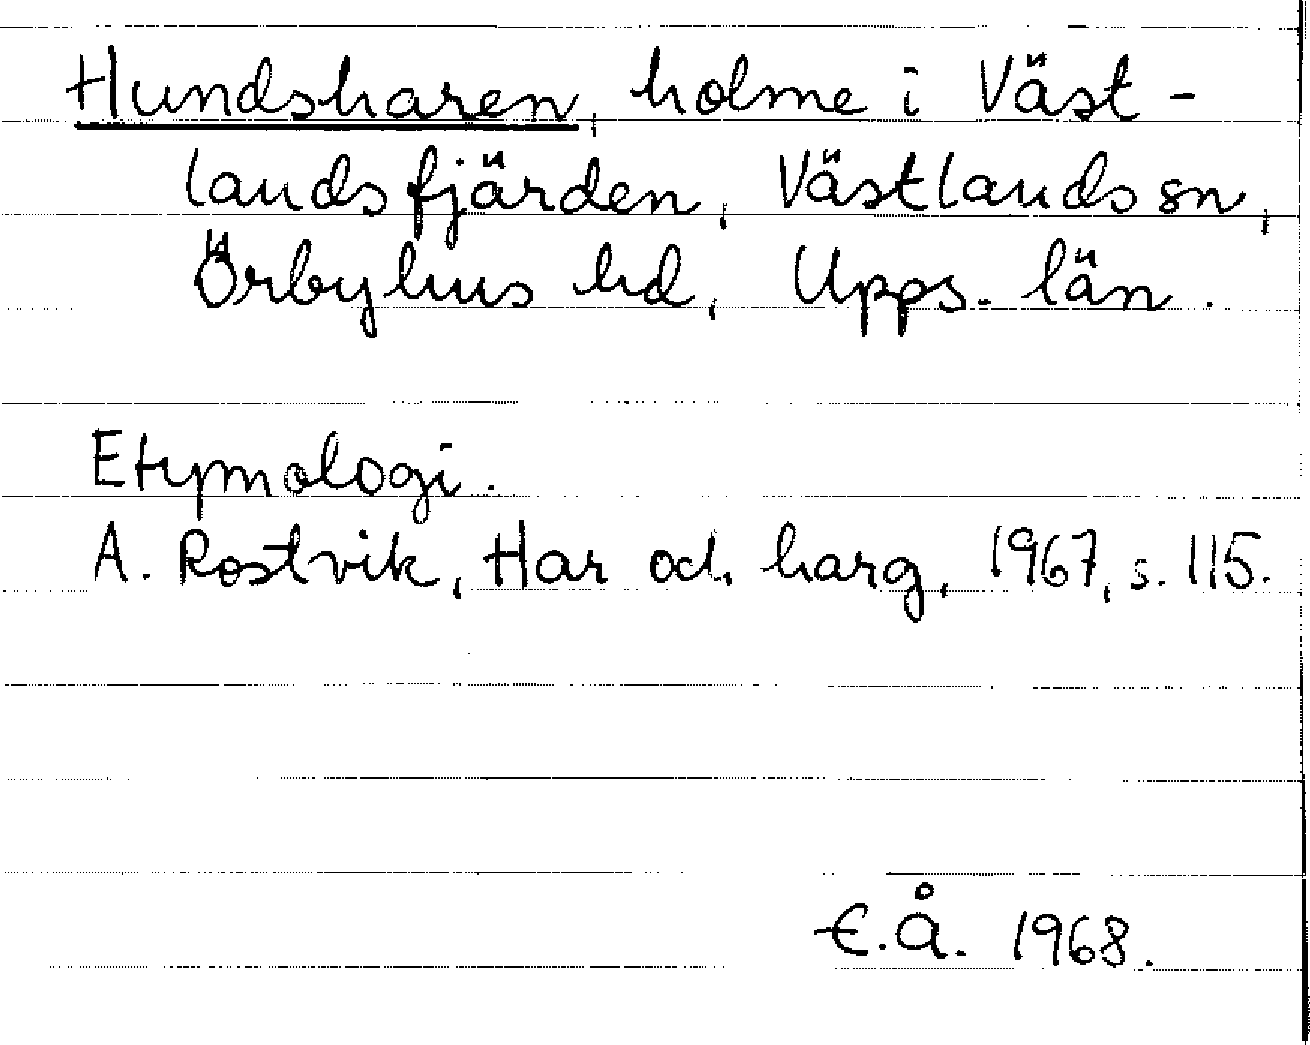 Hundsharen, holme i Väst-
landsfjärden, Västlands sn,
Örbyhus hd, Upps. län.
Etymologi.
A. Rostvik, Har och harg, 1967, s. 115.
E.Å. 1968.